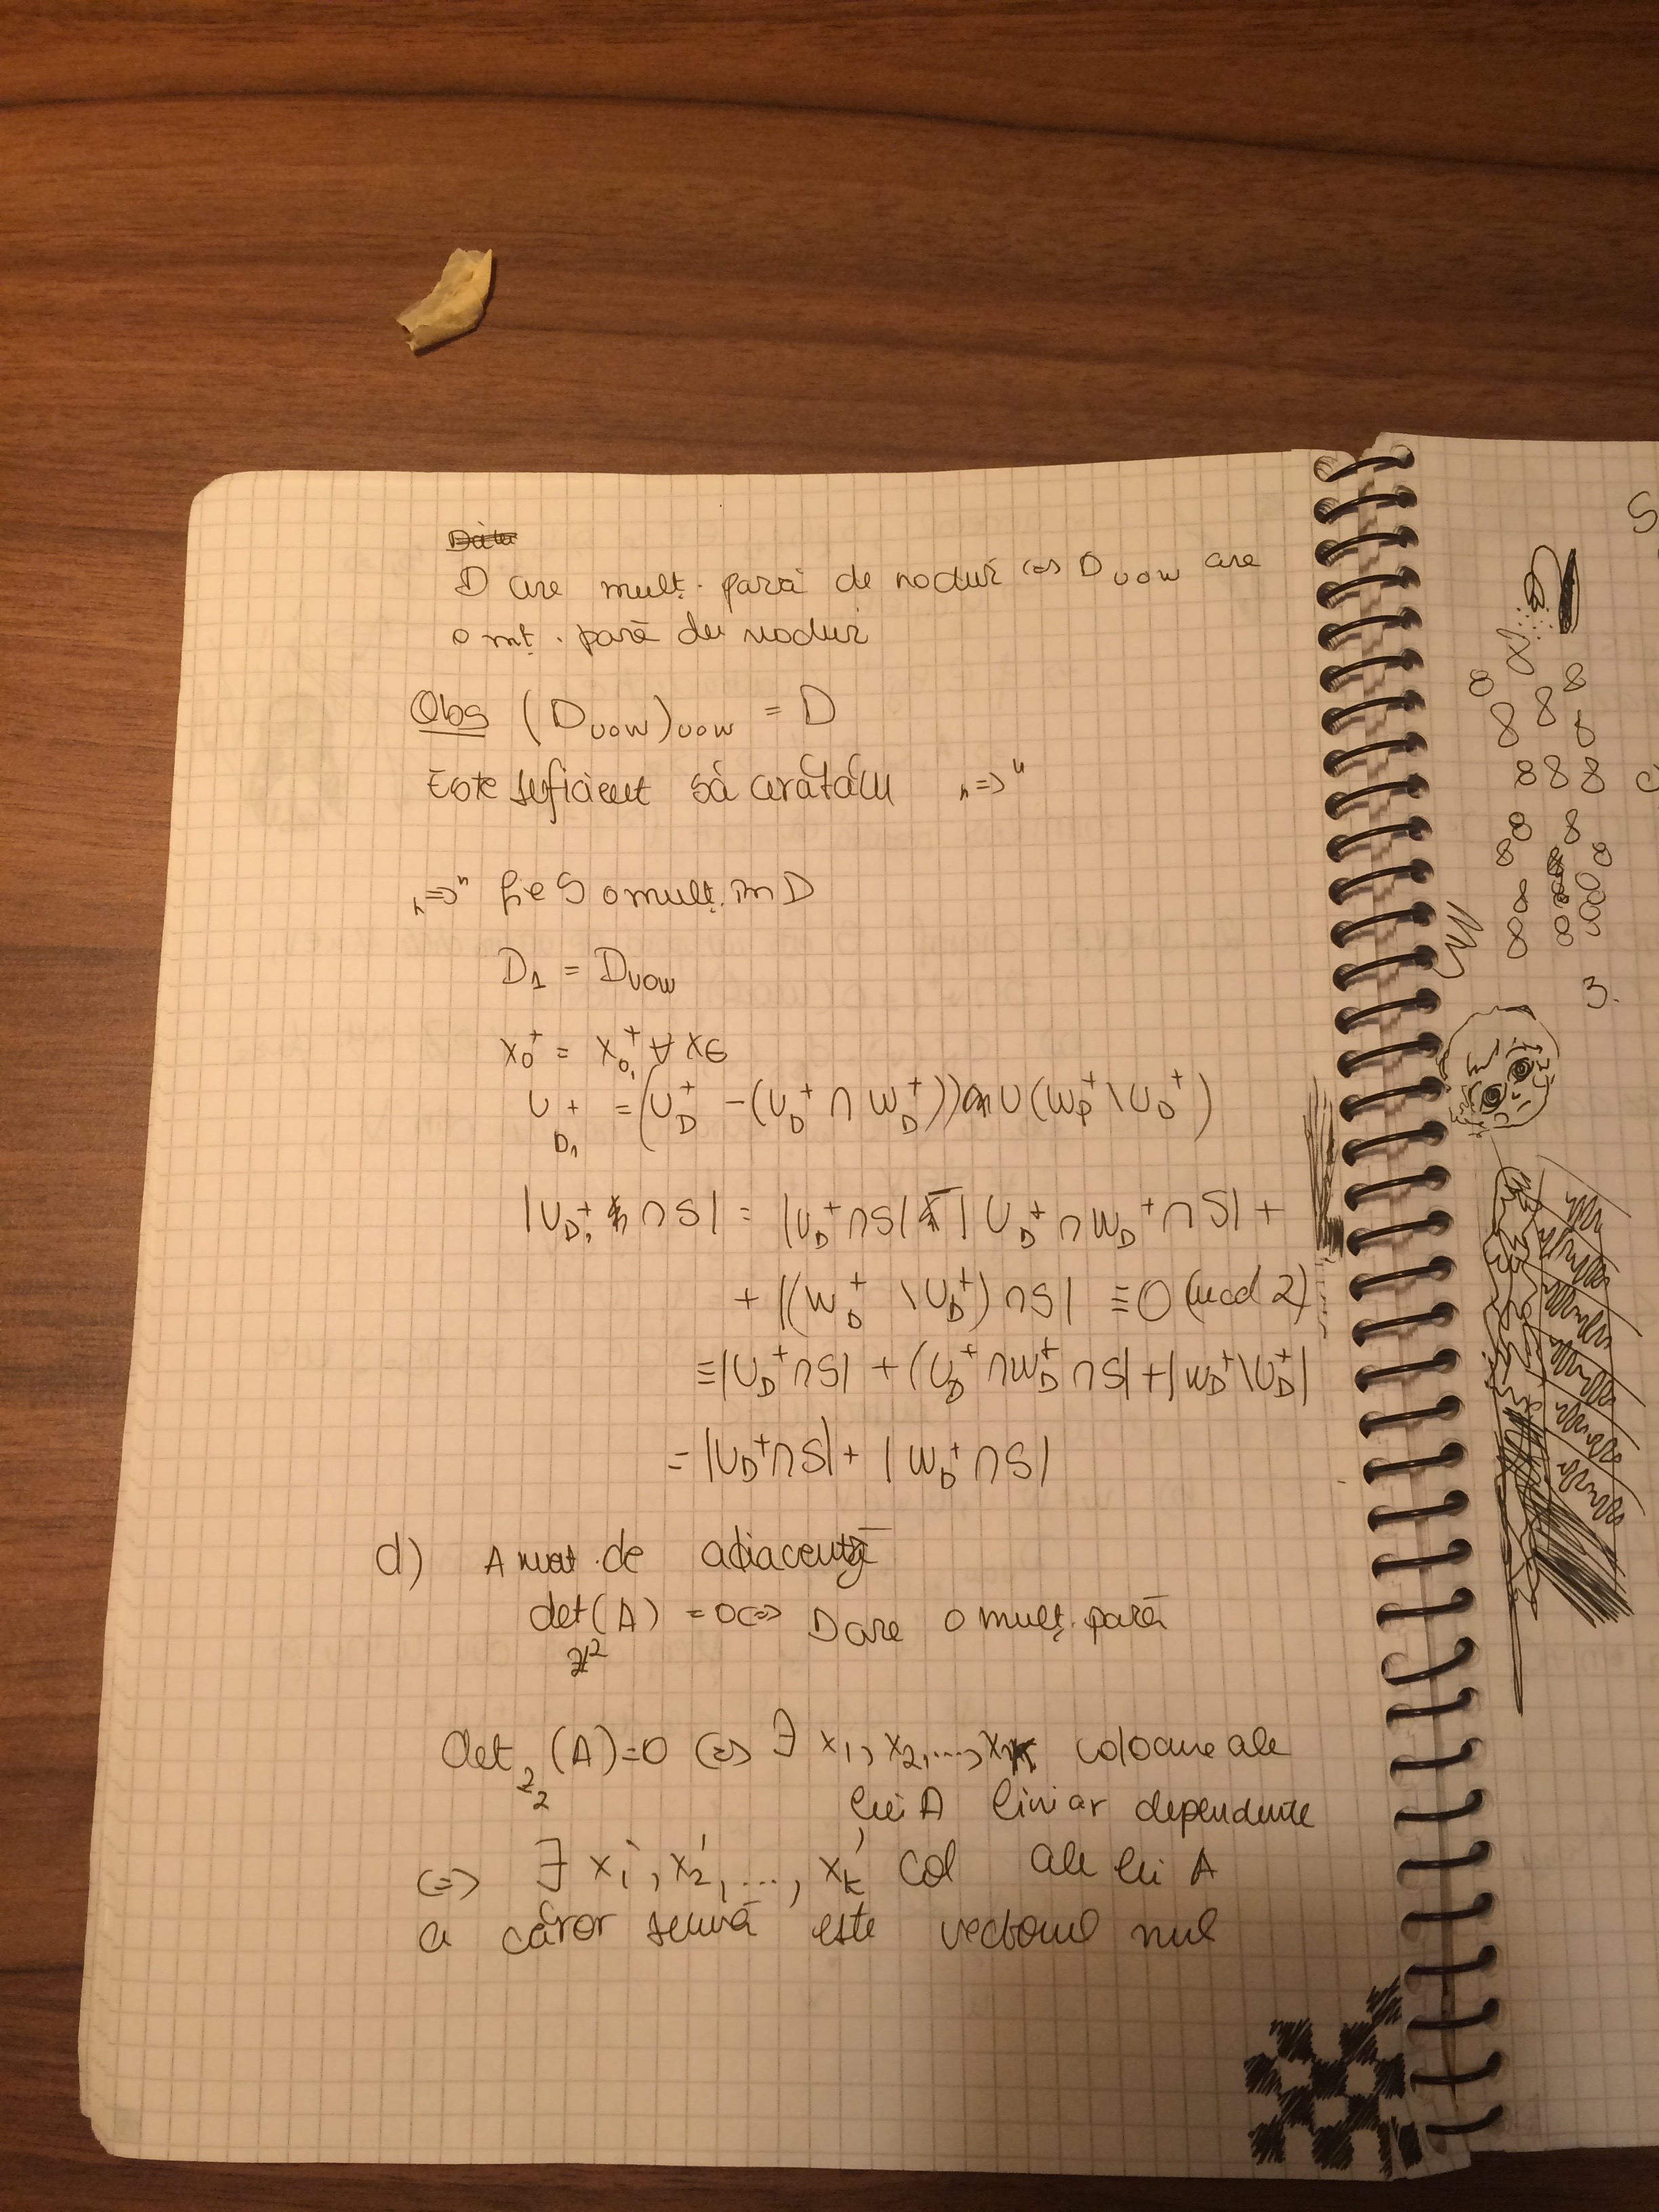 D are mulț. pară de noduri <=> D_vow are
o mț. pară de noduri
Obs (D_vow)_vow = D
Este suficient să arătăm "=>"
"=>" fie S o mulț. în D
D_1 = D_vow
x_D^+ = x_{D_1}^+ ∀ x ∈
v_{D_1}^+ = (v_D^+ - (v_D^+ ∩ w_D^+)) ∪ (w_D^+ \ v_D^+)
|v_{D_1}^+ ∩ S| = |v_D^+ ∩ S| - |v_D^+ ∩ w_D^+ ∩ S| +
+ |(w_D^+ \ v_D^+) ∩ S| ≡ 0 (mod 2)
≡ |v_D^+ ∩ S| + (v_D^+ ∩ w_D^+ ∩ S| + |w_D^+ \ v_D^+|
= |v_D^+ ∩ S| + |w_D^+ ∩ S|
d) A mat. de adiacență
det(A) = 0 <=> D are o mulț. pară
Z^2
det_{Z_2}(A) = 0 <=> ∃ x_1, x_2, ..., x_k coloane ale
lui A liniar dependente
<=> ∃ x_1', x_2', ..., x_k' col ale lui A
a căror sumă este vectorul nul
S
8 8
8 8
8 8 8
8 8
3.